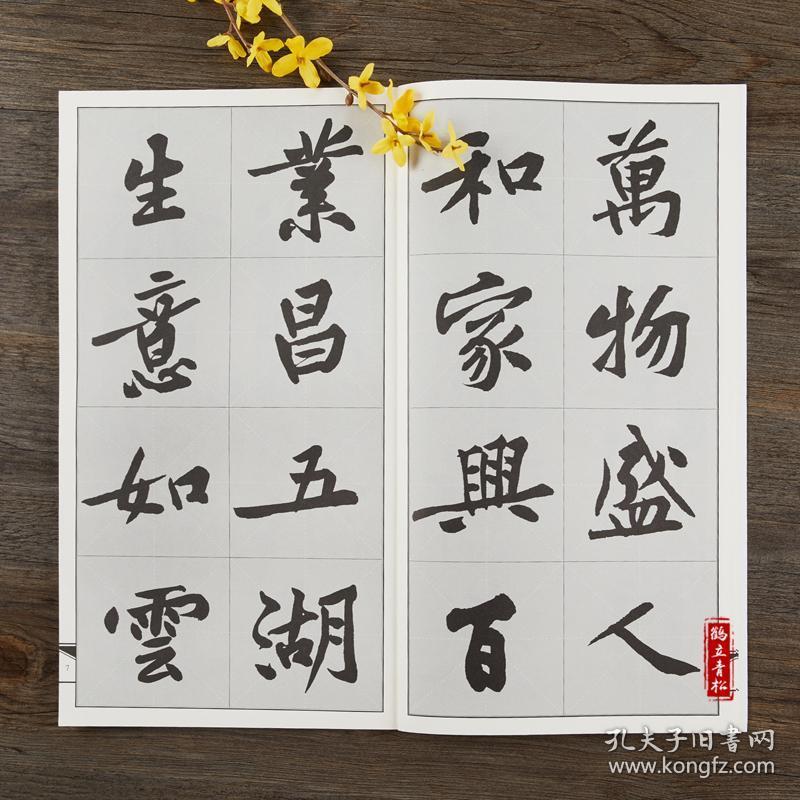 萬物盛人
和家興百
業昌五湖
生意如雲
7
鶴立青松
孔夫子旧書网
www.kongfz.com